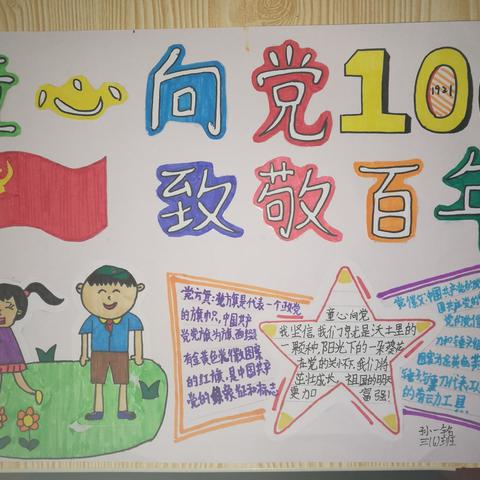 童心向党100
1921
致敬百年
党旗:党旗是代表一个政党
的旗帜,中国共产
党党旗为旗面缀
有金黄色党徽图案
的红旗,是中国共产
党的象徵和标志
童心向党
我坚信,我们才是沃土里的
一颗种,阳光下的一朵葵花
在党的关怀下,我们将
茁壮成长,祖国的明天
更加富强!
党徽:中国共产党
的劳动工具
孙一铭
三(6)班